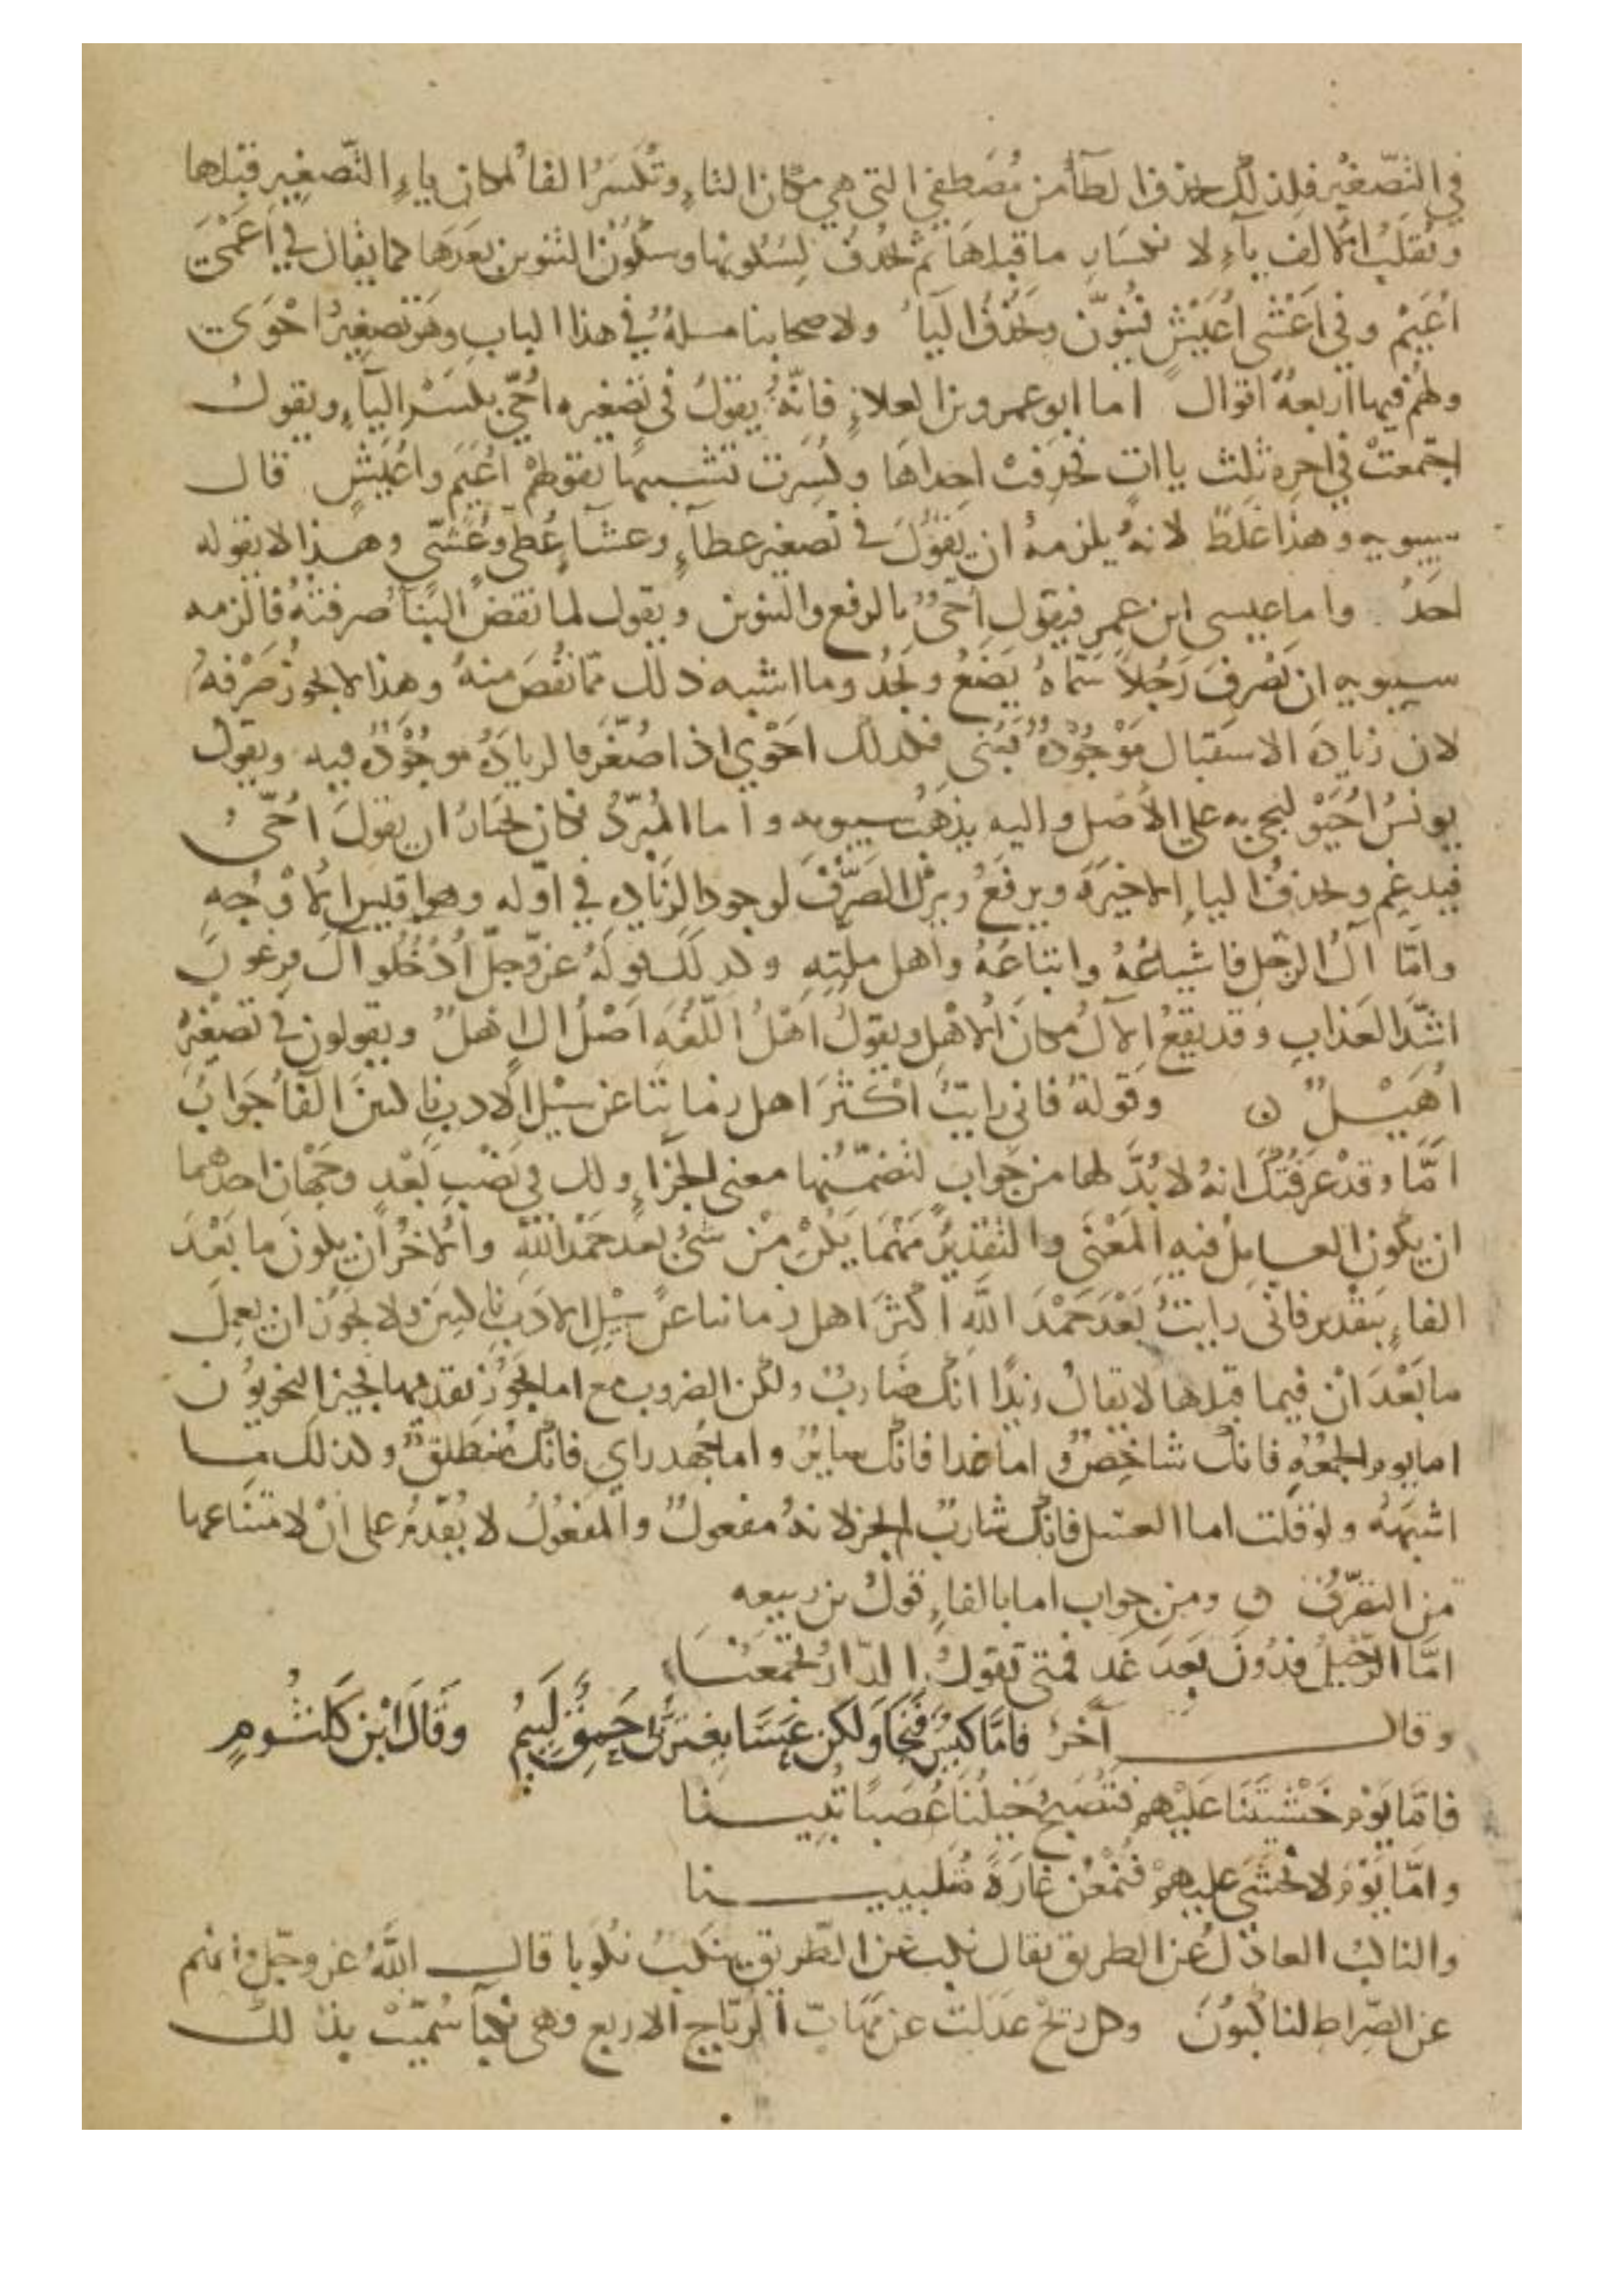 في التصغير فلذلك حذف الطآ من مُصطفي التي هي مكان التاءِ وتُكسَرُ الفا لمكان ياءِ التّصغيرِ قبلها
وتُقلبُ الالف ياءً لانكسارِ ما قبلها ثم تحذفُ لسكونها وسكون التنوين بعدَها كما يقال في اَعمَى
اُعَيْمٍ وفي اَعْشى اُعَيْشٍ فينوّن وتحذفُ اليآ ولاصحابنا مسلةٌ في هذا الباب وهو تصغيرُ احْوَى
ولهُم فيها اربعةُ اقوال اما ابو عمرو بن العلاءِ فانّهُ يقولُ في تصغيره اُحَيٍّ بكسْرِ اليآءِ ويقول
اجتمعتْ في اخرهِ ثلث ياات فحذفتْ احداها وكُسِرت تشبيهًا بقولهمْ اُعَيْمٍ واُعَيْشٍ قال
سيبويه وهذا غلطٌ لانهُ يلزمهُ ان يقُولَ في تصغير عطآءٍ وعشآءٍ عُطَيٍّ وعُشَيٍّ وهذا لا يقوله
احَدٌ واما عيسى ابن عمر فيقول اُحَيٌّ بالرفع والتنوين ويقول لما نقصَ البنآ صرفتُهُ فالزمه
سيبويه ان يَصْرِفَ رَجُلاً سَمّاهُ يَضَعُ ويَجدُ وما اشبه ذلك ممّا نقُصَ منهُ وهذا لا يجوز صَرْفهُ
لان زيادة الاستقبال مَوْجُودةٌ فكذلك احْوَي اذا صُغّرَ فالزيادَةُ موجُودَةٌ فيه ويقول
يونسُ اُحَيْوٍ ليجي به على الأصْل واليه يذهَبُ سيبويه واما المُبرّدُ فكان يختارُ ان يقولَ اُحَيُّ
فيدغم وتحذفُ الياءِ الاخيرَة ويرفعُ ويتركُ الصَّرْفَ لوجود الزيادهِ في اوّله وهو اقيس الاَوْجُهِ
وامّا آلُ الرّجل فاشياعُهُ واتباعُهُ واهل مِلّتهِ وكذلك قولهُ عزّ وجلّ اُدْخُلُوا آل فرعون
اشَدَّ العَذابِ وقد يقعُ الآلُ مكانَ الاهل ويقولُ اهْلُ اللّغَهِ اَصْلُ الِ اهلٌ ويقولون في تصغيرهُ
اُهَيْلٌ ن وقولهُ فاني رايتُ اكْثَرَ اهل زماننا عن سبيل الادب ناكبينَ الفآ جَوابُ
اَمَّا وقدْ عَرَّفتُكَ انهُ لا بُدَّ لها من جَوابٍ لتضمّنها معنى الجزآءِ ولك في نَصْب بَعْدِ وجهان احدهما
ان يكون العامِلُ فيهِ المَعْنَى والتقديرُ مَهْمَا يَكنْ مِنْ شيٍ بعدَ حَمْدِ اللهِ والاخرُ ان يكونَ ما بَعْدَ
الفاءِ بتقْدير فاني رايتُ بَعْدَ حَمْدِ اللهِ اكثرَ اهل زماننا عَنْ سبيْلِ الادَبِ ناكبينَ ولا يجَوزُ ان يعمِلَ
ما بَعْدَ انْ فيما قبلها لا يقالُ زيدًا انّكَ ضاربٌ ولكن الضروب مع اما يجُوز تقدمها يجيز النحويون
اما يوم الجمعُهِ فانكَ شاخِصٌ واما غدا فانكَ سايرٌ واما جُهد راي فانّك مُنطلقٌ وكذلك ما
اشبهَهُ ولو قلت اما العسَل فانّكَ شاربٌ لم يجز لانهُ مفعولٌ والمفعُولُ لا يُقدّمُ على انْ لامتناعها
من التصرّفِ ن ومن جواب اما بالفاءِ قولُ بن ربيعه
امَّا الرّحيلُ فدُونَ بَعدَ غَدٍ فمتى تقولُ الدّارُ تجمَعُنَا
وقال آخرُ فامَّا كَيِّسٌ فَنَجَا ولكن عَسَى يغترُّ بي حَمِقٌ لَئِيمُ وقَالَ ابْن كَلثُومٍ
فامّا يَوْمَ خَشْيَتنَا عَليْهم فتُصْبحُ خَيلُنَا عُصَبًا ثُبينا
وامّا يَوْمَ لا نخشَى عليهمْ فنُمْعِنُ غارَةً مُتلببينا
والناكبُ العادلُ عن الطريق يقال نكبَ عن الطّريق ينكَبُ نُكُوبا قال اللهُ عز وجلّ وانهم
عن الصّراطِ لناكبُونَ وكل ريحٍ عَدَلتْ عن مَهَابّ الرّيَاح الاربع فهي نكبآ سُمّيتْ بذلك